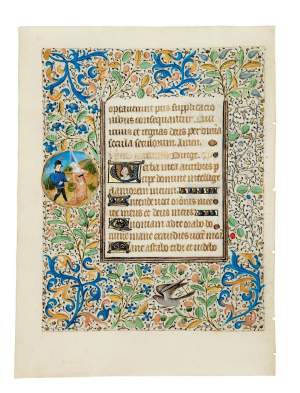 optaverunt piis supplicatio
nibus consequantur. Qui
vivis et regnas deus per omnia
secula seculorum. Amen.
Dirige.
Verba mea auribus p
cipe domine intellige
clamorem meum
Intende voci orationis
mee rex meus et deus meus
Quoniam ad te orabo do
mine mane exaudies vocem mea
Mane astabo tibi et videbo